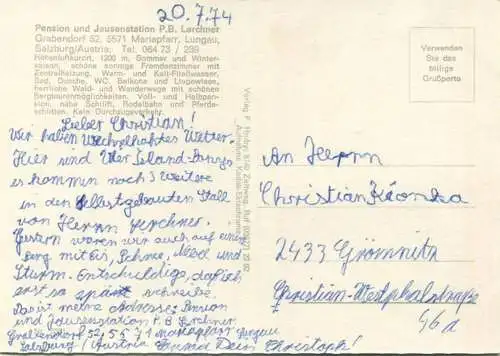 20.7.74
Pension und Jausenstation P.B. Lerchner
Grabendorf 52, 5571 Mariapfarr, Lungau,
Salzburg/Austria, Tel. 064 73 / 239
Höhenluftkurort, 1200 m, Sommer und Winter-
saison, schöne sonnige Fremdenzimmer mit
Zentralheizung, Warm- und Kalt-Fließwasser,
Bad, Dusche, WC, Balkone und Liegewiese,
herrliche Wald- und Wanderwege mit schönen
Bergtourenmöglichkeiten. Voll- und Halbpen-
sion, nahe Schilift, Rodelbahn und Pferde-
schlitten. Kein Durchzugsverkehr.
Lieber Christian!
Wir haben Wechselhaftes Wetter.
Hier und
es kommen noch 3 weitere
in den selbstgebauten Stall
von Herrn Lerchner.
Gestern waren wir auch auf einem
Berg mit Eis, Schnee, und
Sturm. Entschuldige, daß ich
erst so spät schreibe.
Das ist meine Adresse: Pension
und Jausenstation P.B. Lerchner
Grabendorf 52, 5571 Mariapfarr Lungau
Salzburg / Austria Dein Christoph!
Verlag F.
Verwenden
Sie das
billige
Grußporto
An Herrn
Christian
2433 Grömnitz
Christian-Westphalstraße
46a